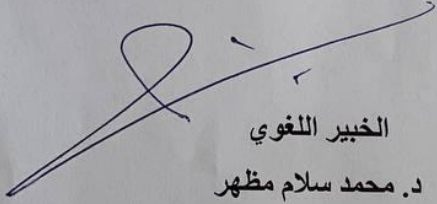 الخبير اللغوي
د. محمد سلام مظهر